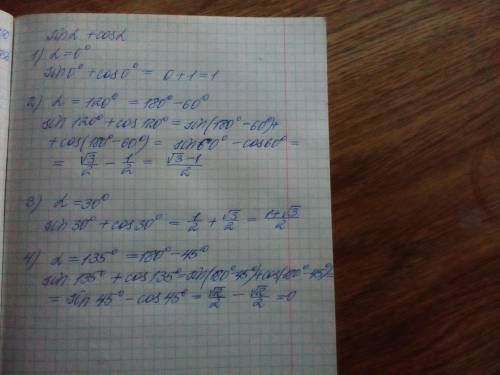 sinα + cosα
1) α = 0°
sin 0° + cos 0° = 0 + 1 = 1
2) α = 120° = 180° - 60°
sin 120° + cos 120° = sin(180° - 60°) +
+ cos(180° - 60°) = sin 60° - cos 60° =
= √3/2 - 1/2 = (√3 - 1)/2
3) α = 30°
sin 30° + cos 30° = 1/2 + √3/2 = (1 + √3)/2
4) α = 135° = 180° - 45°
sin 135° + cos 135° = sin(180° - 45°) + cos(180° - 45°) =
= sin 45° - cos 45° = √2/2 - √2/2 = 0